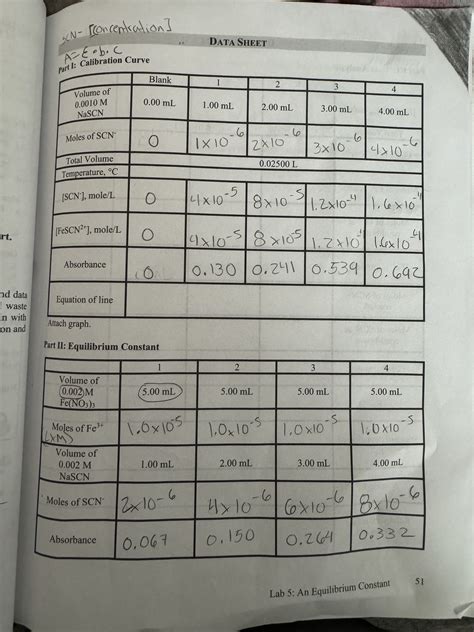 SCN- [concentration]
A=E•b•C
DATA SHEET
Part I: Calibration Curve
Blank 1 2 3 4
Volume of 0.0010 M NaSCN 0.00 mL 1.00 mL 2.00 mL 3.00 mL 4.00 mL
Moles of SCN⁻ 0 1x10⁻⁶ 2x10⁻⁶ 3x10⁻⁶ 4x10⁻⁶
Total Volume 0.02500 L
Temperature, °C
[SCN⁻], mole/L 0 4x10⁻⁵ 8x10⁻⁵ 1.2x10⁻⁴ 1.6x10⁻⁴
[FeSCN²⁺], mole/L 0 4x10⁻⁵ 8x10⁻⁵ 1.2x10⁻⁴ 1.6x10⁻⁴
Absorbance 0 0.130 0.241 0.539 0.692
Equation of line
Attach graph.
rt.
nd data
waste
n with
on and
Part II: Equilibrium Constant
1 2 3 4
Volume of 0.002 M Fe(NO₃)₃ 5.00 mL 5.00 mL 5.00 mL 5.00 mL
Moles of Fe³⁺ (xM) 1.0x10⁻⁵ 1.0x10⁻⁵ 1.0x10⁻⁵ 1.0x10⁻⁵
Volume of 0.002 M NaSCN 1.00 mL 2.00 mL 3.00 mL 4.00 mL
Moles of SCN⁻ 2x10⁻⁶ 4x10⁻⁶ 6x10⁻⁶ 8x10⁻⁶
Absorbance 0.067 0.150 0.264 0.332
Lab 5: An Equilibrium Constant 51